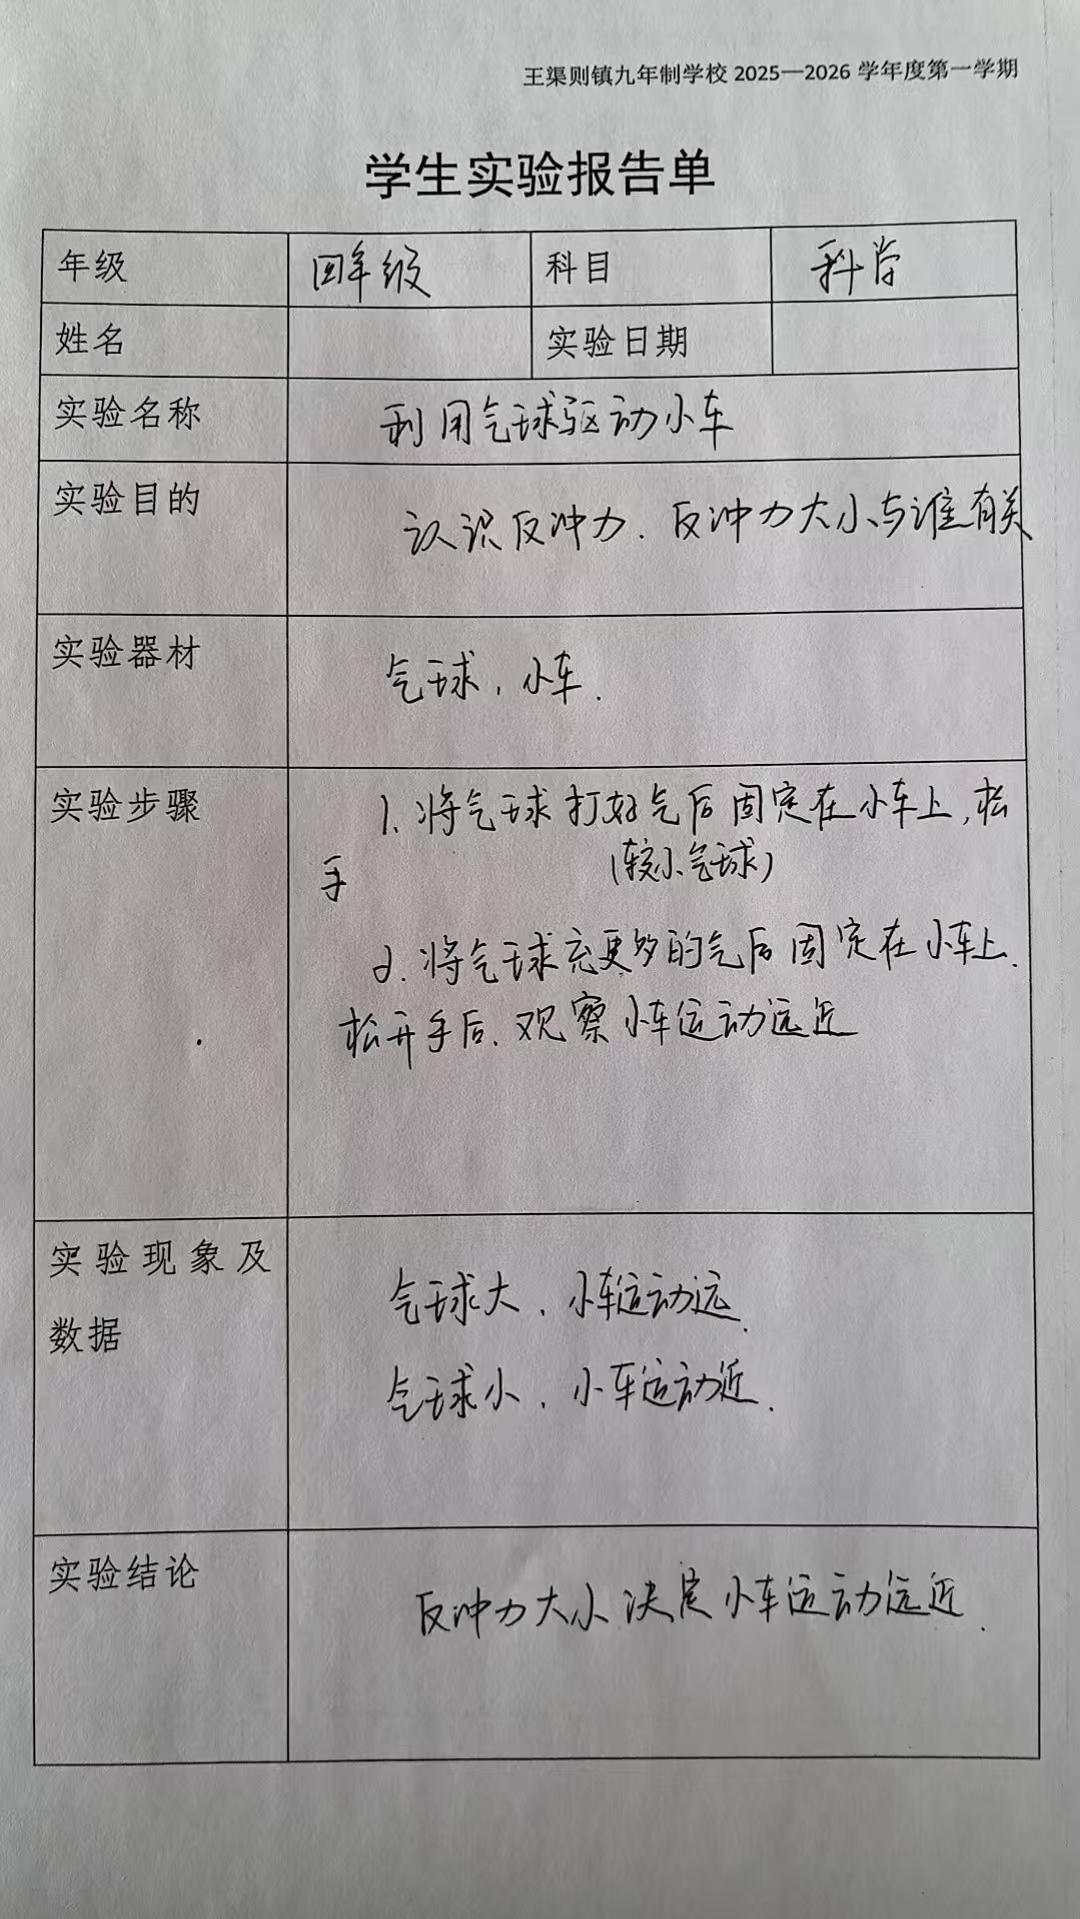 王渠则镇九年制学校 2025—2026 学年度第一学期
学生实验报告单
年级 四年级 科目 科学
姓名 实验日期
实验名称 利用气球驱动小车
实验目的 认识反冲力.反冲力大小与谁有关
实验器材 气球,小车.
实验步骤 1.将气球打好气后固定在小车上,松
手 (较小气球)
2.将气球充更多的气后固定在小车上.
松开手后.观察小车运动远近
实验现象及
数据
气球大.小车运动远.
气球小.小车运动近.
实验结论 反冲力大小决定小车运动远近.